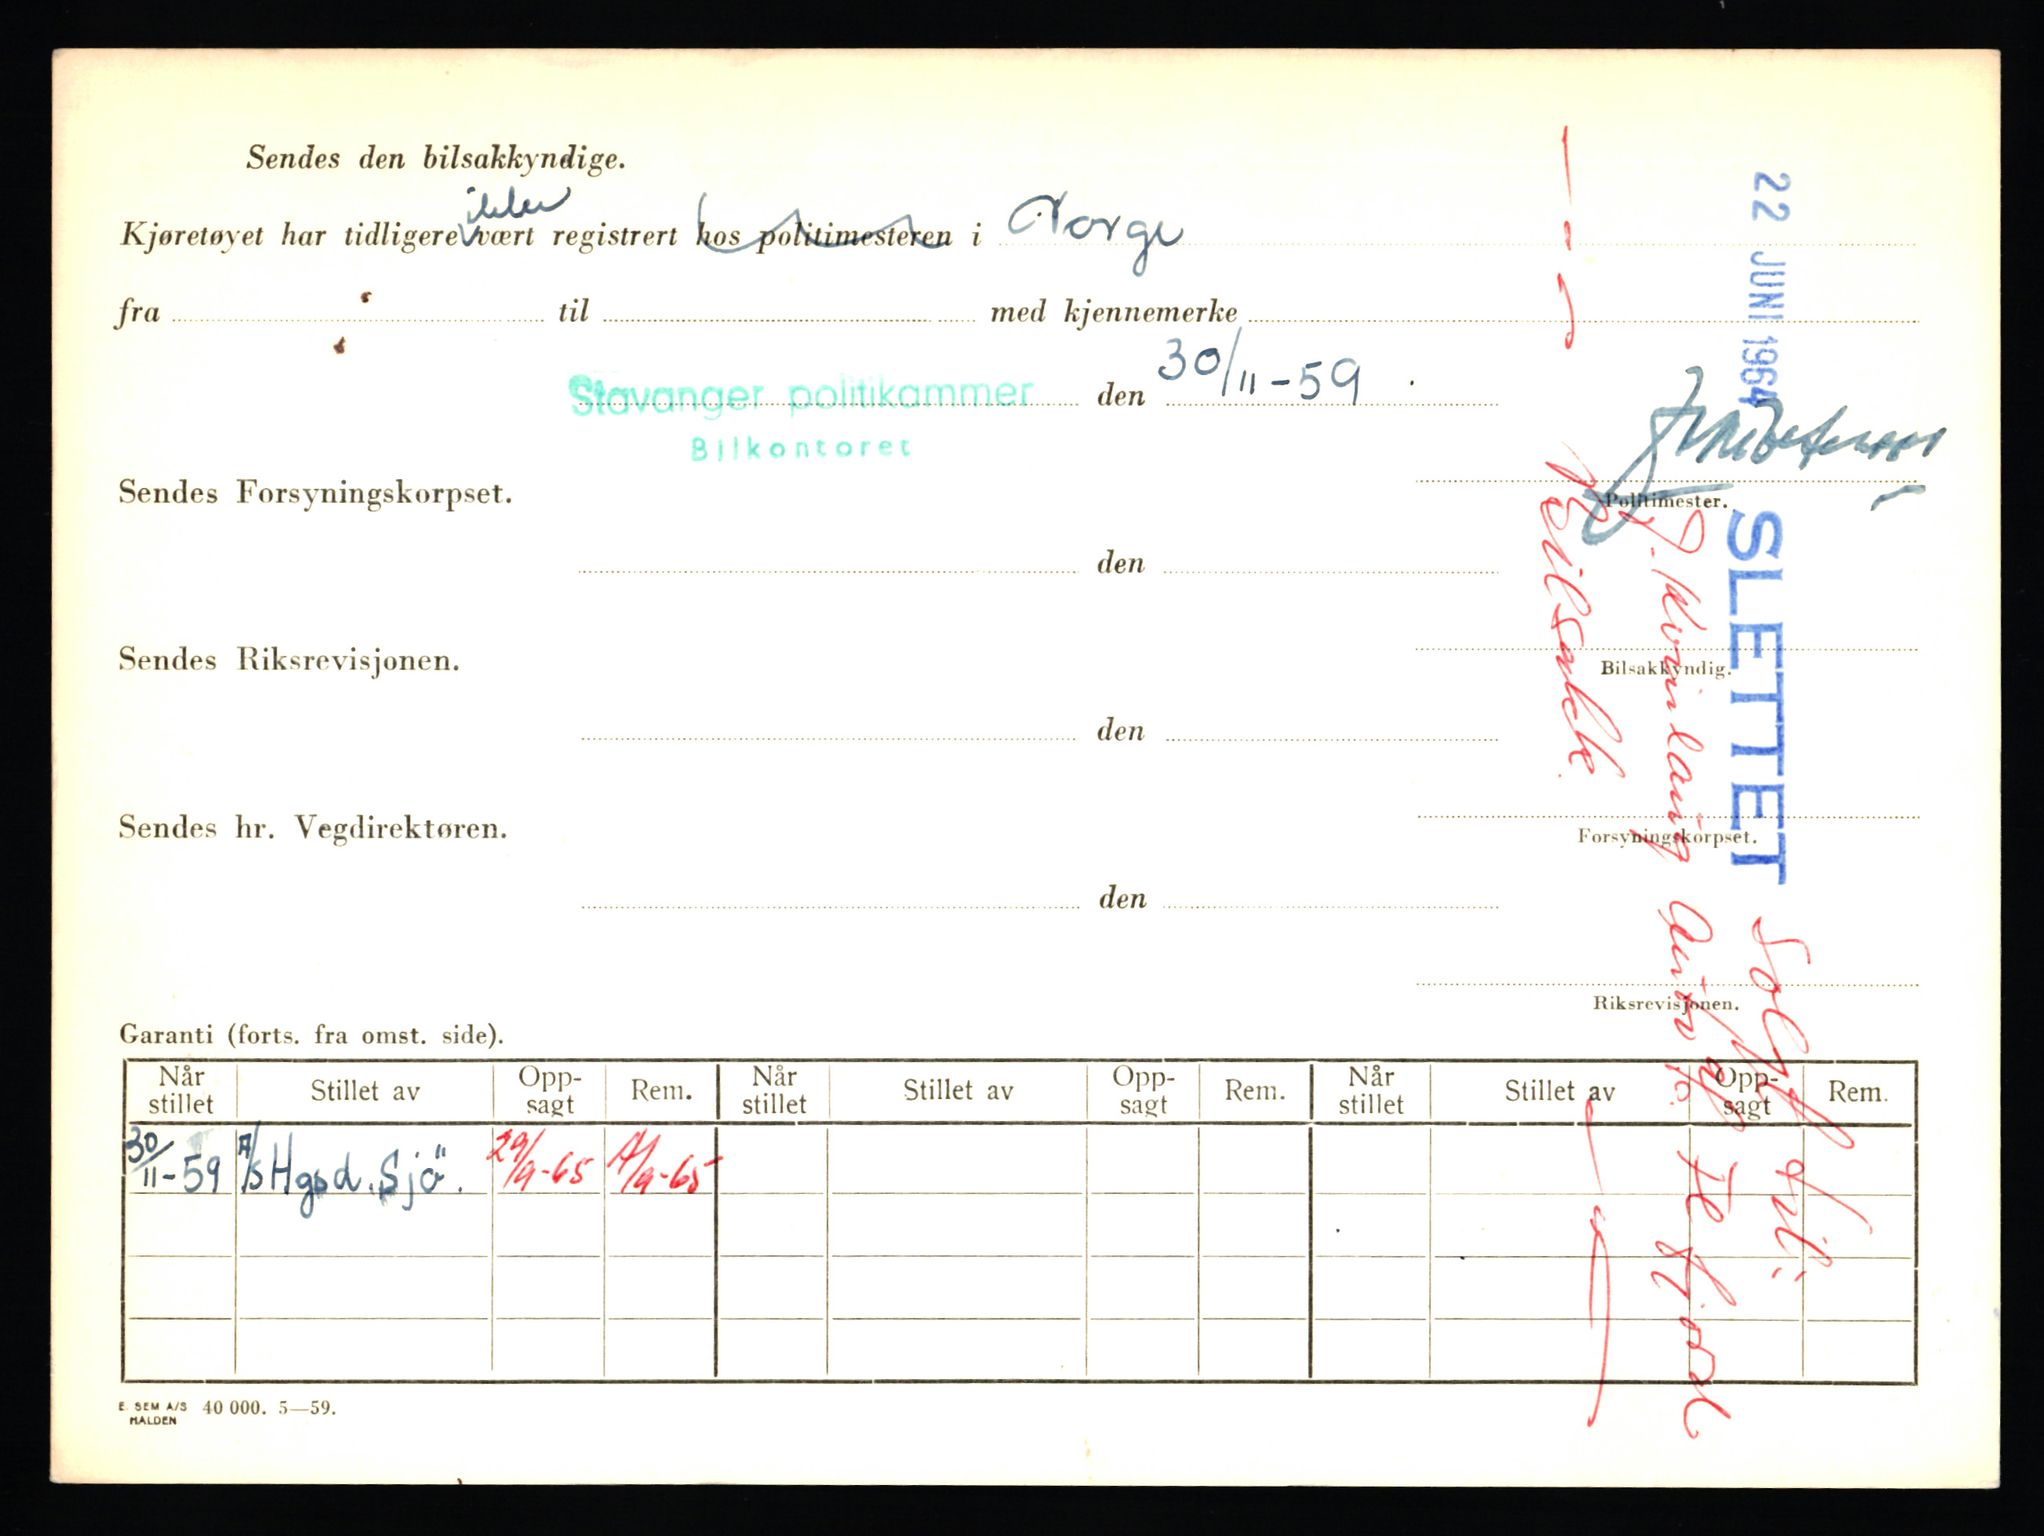 Sendes den bilsakkyndige.
ikke
Kjøretøyet har tidligere vært registrert hos politimesteren i Norge
fra til med kjennemerke
Stavanger politikammer den 30/11-59
Bilkontoret
Politimester.
Sendes Forsyningskorpset.
den
Bilsakkyndig.
Sendes Riksrevisjonen.
den
Forsyningskorpset.
Sendes hr. Vegdirektøren.
den
Riksrevisjonen.
22 JUNI 1964 SLETTET
Garanti (forts. fra omst. side).
Når stillet Stillet av Opp-sagt Rem. Når stillet Stillet av Opp-sagt Rem. Når stillet Stillet av Opp-sagt Rem.
30/11-59 A/S Hgsd. Sjö. 29/9-65 -65
E. SEM A/S HALDEN 40 000. 5—59.